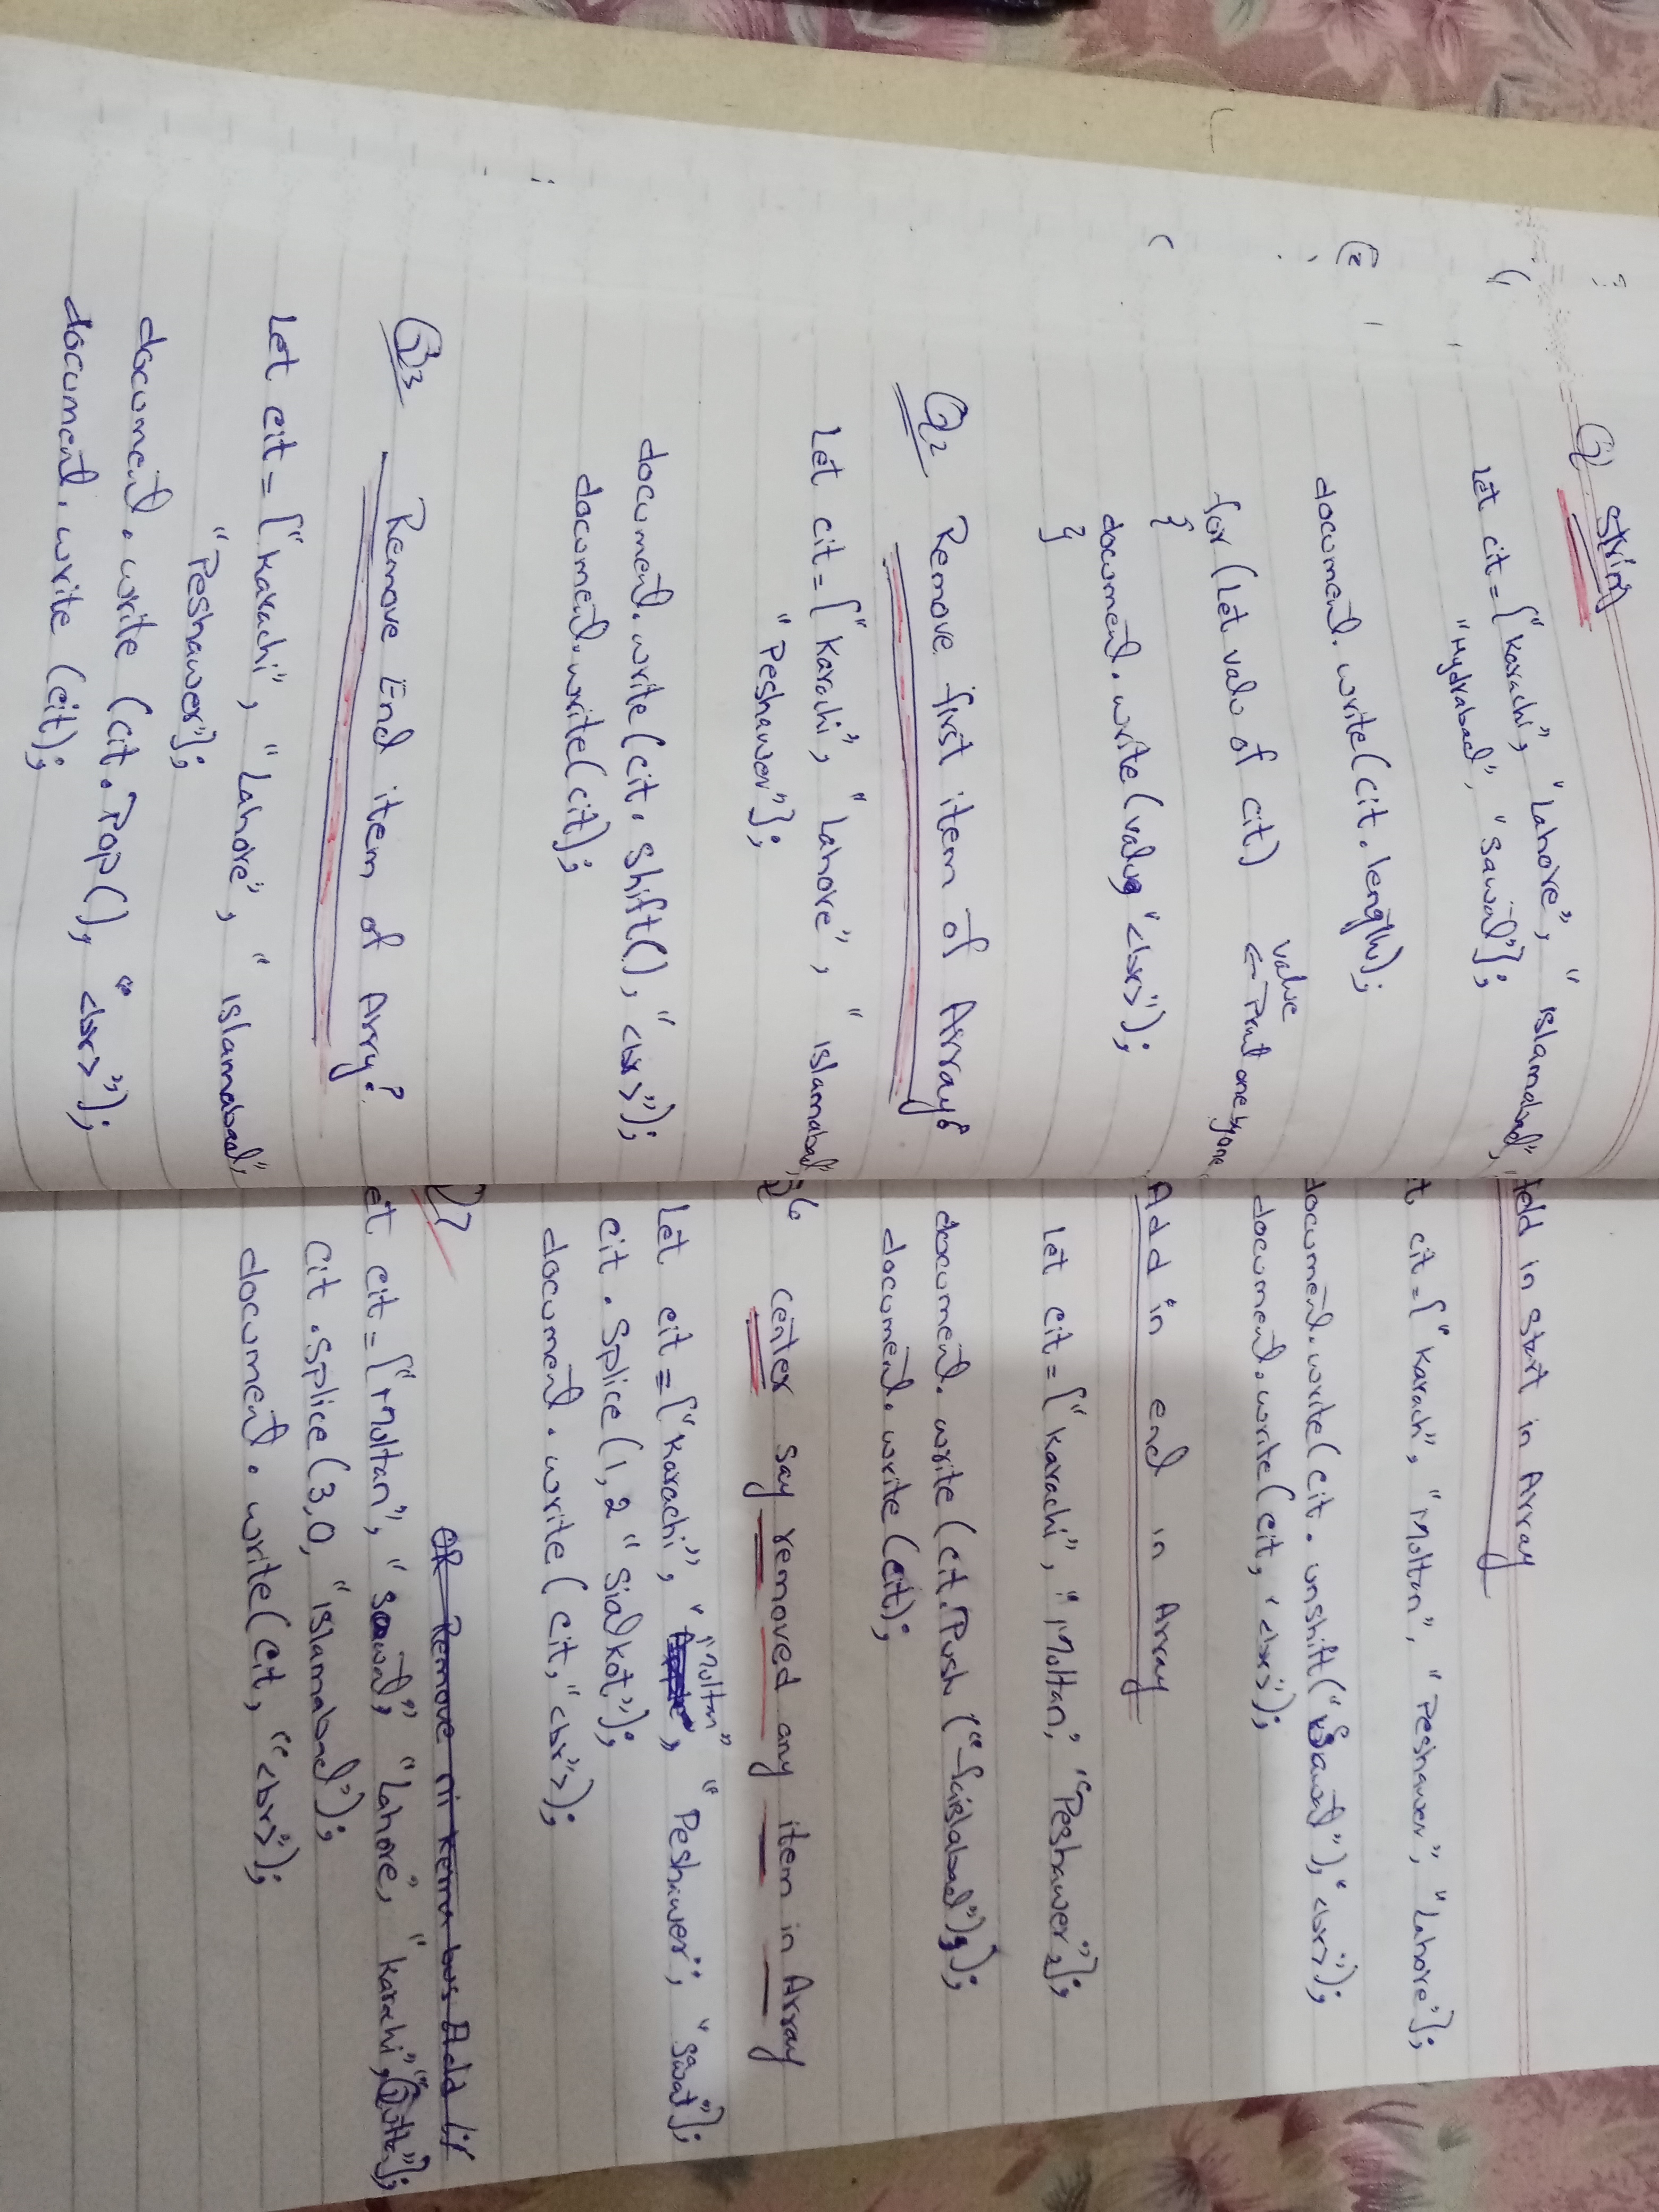 Q1 String
Let cit = ["Karachi", "Lahore", "islamabad",
"Hydrabad", "Sawat"];
document.write(cit.length);
for (Let valu of cit) ← Print one by one
value
{
document.write(value "<br>");
}
Q2 Remove first item of Array?
Let cit = ["Karachi", "Lahore", "islamabad",
"Peshawer"];
document.write(cit.shift(), "<br>");
document.write(cit);
Q3 Remove End item of Arry?
Let cit = ["Karachi", "Lahore", "islamabad",
"Peshawer"];
document.write (cit.Pop(), "<br>");
document.write (cit);
Add in Start in Array
t cit = ["Karachi", "Moltan", "Peshawer", "Lahore"];
document.write(cit.unshift("Sawat"), "<br>");
document.write(cit, "<br>");
Add in end in Array
Let cit = ["Karachi", "Moltan", "Peshawer"];
document.write(cit.Push ("faislabad"));
document.write(cit);
6 center say removed any item in Array
Let cit = ["Karachi", "Moltan", "Peshawer", "Sawat"];
cit.Splice(1,2 "Sialkot");
document.write(cit, "<br>");
Q7 OR Remove ni kerna bus Add
et cit = ["Moltan", "Sawat", "Lahore", "karachi",
cit.splice(3,0, "islamabad");
document.write(cit, "<br>");